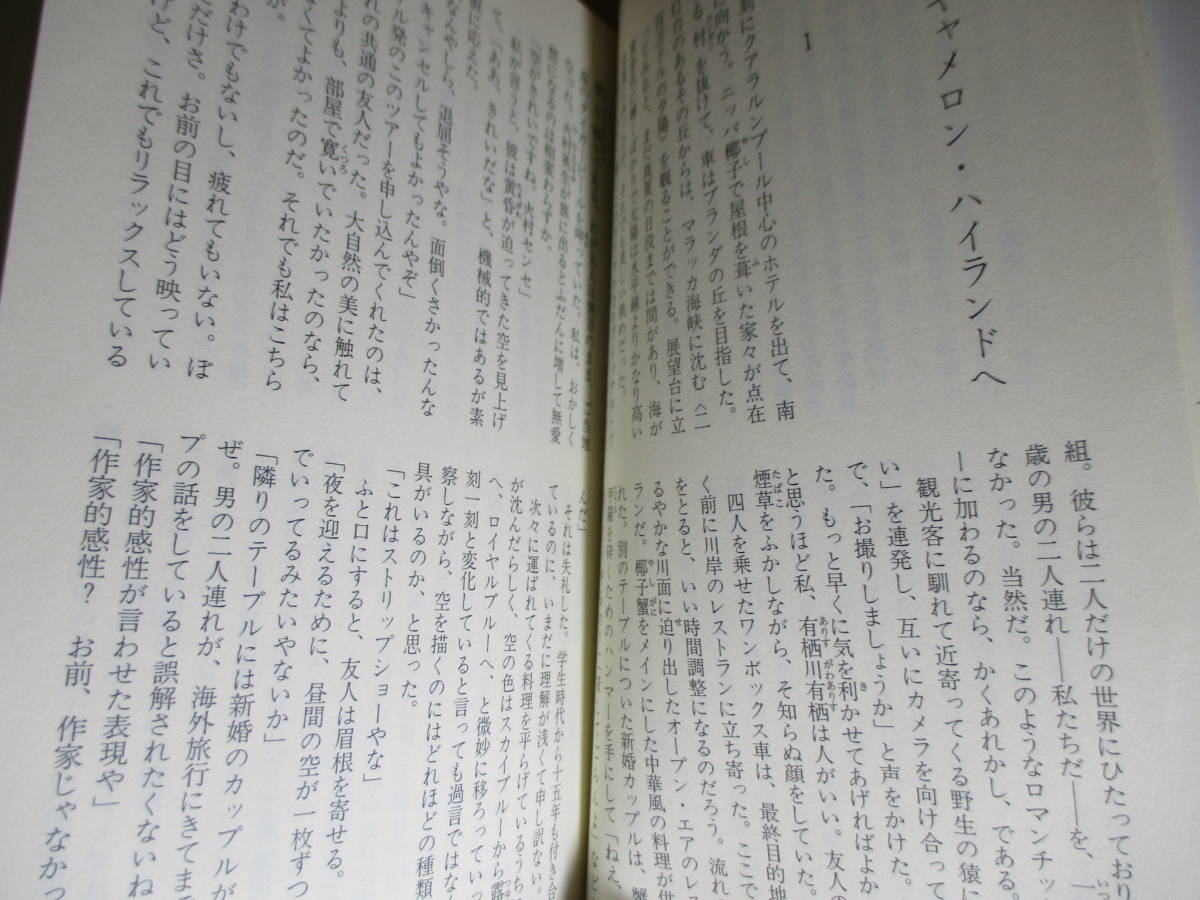 キャメロン・ハイランドへ
1
刻にクアラルンプール中心のホテルを出て、南
に向かう。ニッパ椰子で屋根を葺いた家々が点在
る村を抜けて、車はブランダの丘を目指した。
灯台のあるその丘からは、マラッカ海峡に沈む〈二
の夕陽〉を観ることができる。展望台に立
ってみると、まだ真夏の日没までは間があり、海が
太陽は水平線よりかなり高い
組。彼らは二人だけの世界にひたっており
歳の男の二人連れ――私たちだ――を、一
なかった。当然だ。このようなロマンチッ
ーに加わるのなら、かくあれかし、である。
観光客に馴れて近寄ってくる野生の猿に
い」を連発し、互いにカメラを向け合って
で、「お撮りしましょうか」と声をかけた。
た。もっと早くに気を利かせてあげればよか
と思うほど私、有栖川有栖は人がいい。友人の
煙草をふかしながら、そ知らぬ顔をしていた。
四人を乗せたワンボックス車は、最終目的地
く前に川岸のレストランに立ち寄った。ここで
をとると、いい時間調整になるのだろう。流れ
るやかな川面に迫り出したオープン・エアのレス
ランだ。椰子蟹をメインにした中華風の料理が供
れた。別のテーブルについた新婚カップルは、蟹
甲羅を砕くためのハンマーを手にして「ねえ、
なった。火村英生が旅に出るとふだんに増して無愛
想になるのは相変わらずか。
「空がきれいですね、火村センセ」
私が言うと、彼は黄昏が迫ってきた空を見上げ
て、「ああ、きれいだな」と、機械的ではあるが素
直に応えた。
なんやしら、退屈そうやな。面倒くさかったんな
キャンセルしてもよかったんやぞ」
ル発のこのツアーを申し込んでくれたのは、
れの共通の友人だった。大自然の美に触れて
よりも、部屋で寛いでいたかったのなら、
なくてよかったのだ。それでも私はこちら
が。
わけでもないし、疲れてもいない。ぼ
だけさ。お前の目にはどう映ってい
けど、これでもリラックスしている
んだ」
それは失礼した。学生時代から十五年も付き合
ているのに、いまだに理解が浅くて申し訳ない。
次々に運ばれてくる料理を平らげているうち
が沈んだらしく、空の色はスカイブルーから露
へ、ロイヤルブルーへ、と微妙に移ろってい
刻一刻と変化していると言っても過言ではな
察しながら、空を描くのにはどれほどの種類
具がいるのか、と思った。
「これはストリップショーやな」
ふと口にすると、友人は眉根を寄せる。
「夜を迎えるために、昼間の空が一枚ずつ
でいってるみたいやないか」
「隣りのテーブルには新婚のカップルが
ぜ。男の二人連れが、海外旅行にきてま
プの話をしていると誤解されたくないね
「作家的感性が言わせた表現や」
「作家的感性？　お前、作家じゃなかっ